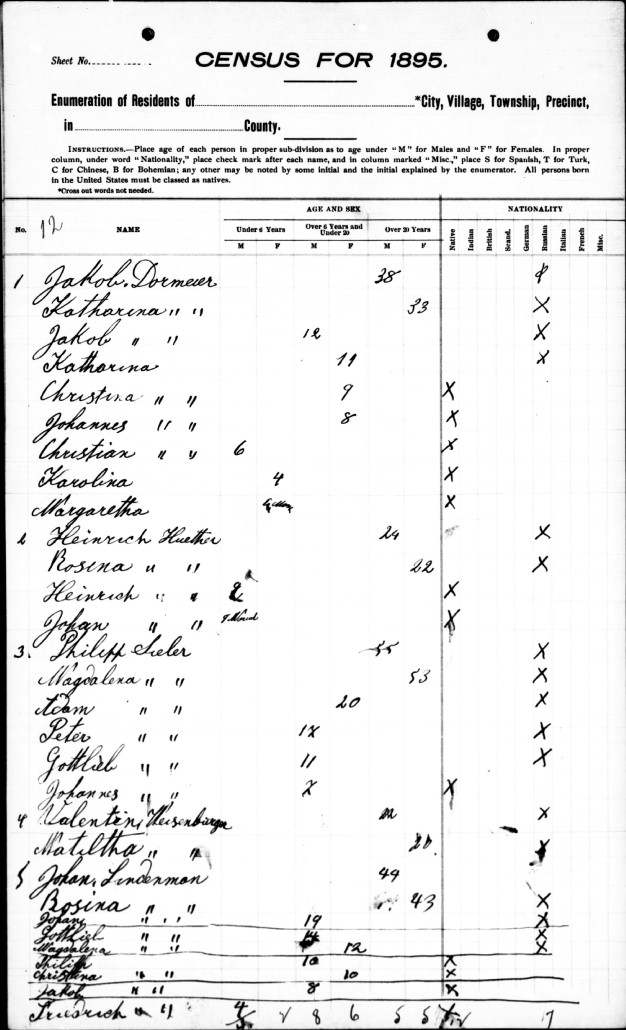 Sheet No.
CENSUS FOR 1895.
Enumeration of Residents of *City, Village, Township, Precinct,
in County.
INSTRUCTIONS.—Place age of each person in proper sub-division as to age under "M" for Males and "F" for Females. In proper
column, under word "Nationality," place check mark after each name, and in column marked "Misc.," place S for Spanish, T for Turk,
C for Chinese, B for Bohemian; any other may be noted by some initial and the initial explained by the enumerator. All persons born
in the United States must be classed as natives.
*Cross out words not needed.
AGE AND SEX NATIONALITY
No. 12 NAME Under 6 Years Over 6 Years and Under 20 Over 20 Years Native Indian British Scand. German Russian Italian French Misc.
M F M F M F
1 Jakob, Dormeier 38
Katharina " " 33 X
Jakob " " 12 X
Katharina 11 X
Christina " " 9 X
Johannes " " 8 X
Christian " " 6 X
Karolina 4 X
Margaretha X
2 Heinrich Huether 24 X
Rosina " " 22 X
Heinrich " " X
Johan " " X
3. Philipp Sieler 55 X
Magdalena " " 53 X
Adam " " 20 X
Peter " " X
Gottlieb " " 11 X
Johannes " " X
4 Valentin, X
Matiltha " " X
5 Johan, Lindenman 44
Rosina " " 43 X
Johan " " 19 X
Gottlieb " " X
Magdalena " " 12 X
Philipp 10 X
Christina " " 10 X
Jakob " " 8 X
Friedrich " " 8 6 5 5